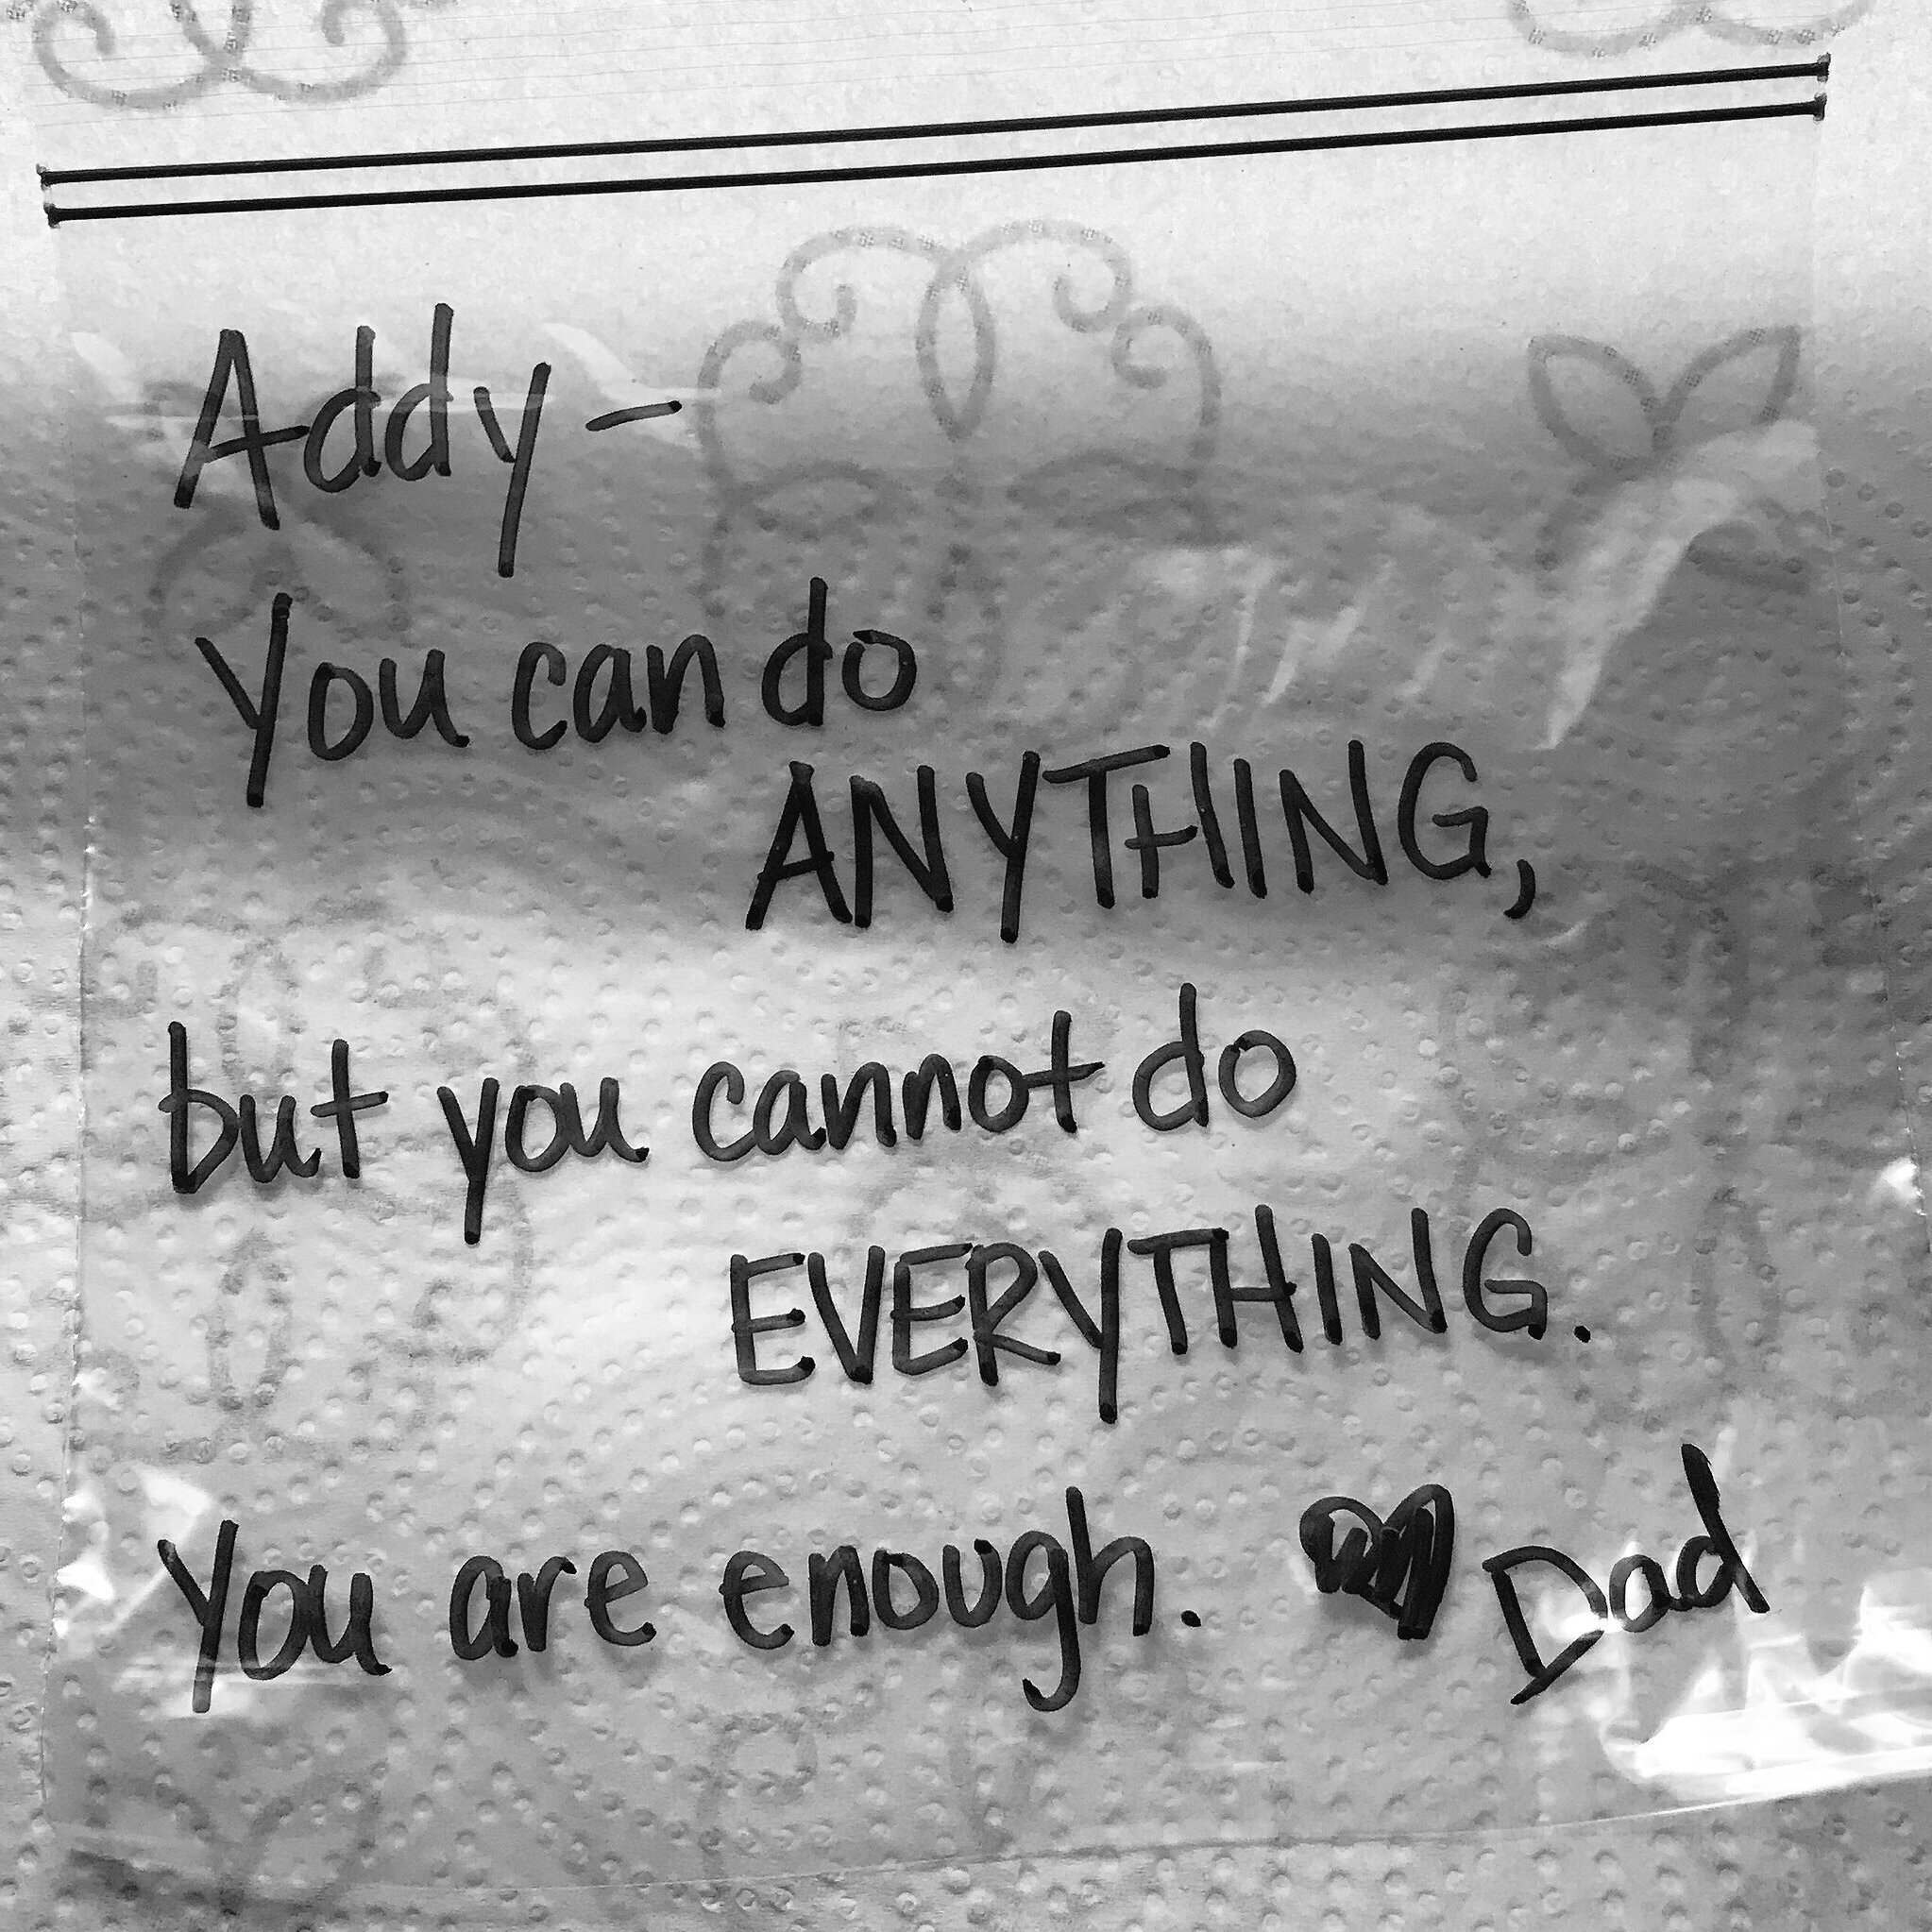 Addy -
You can do
ANYTHING,
but you cannot do
EVERYTHING.
You are enough. ♥ Dad